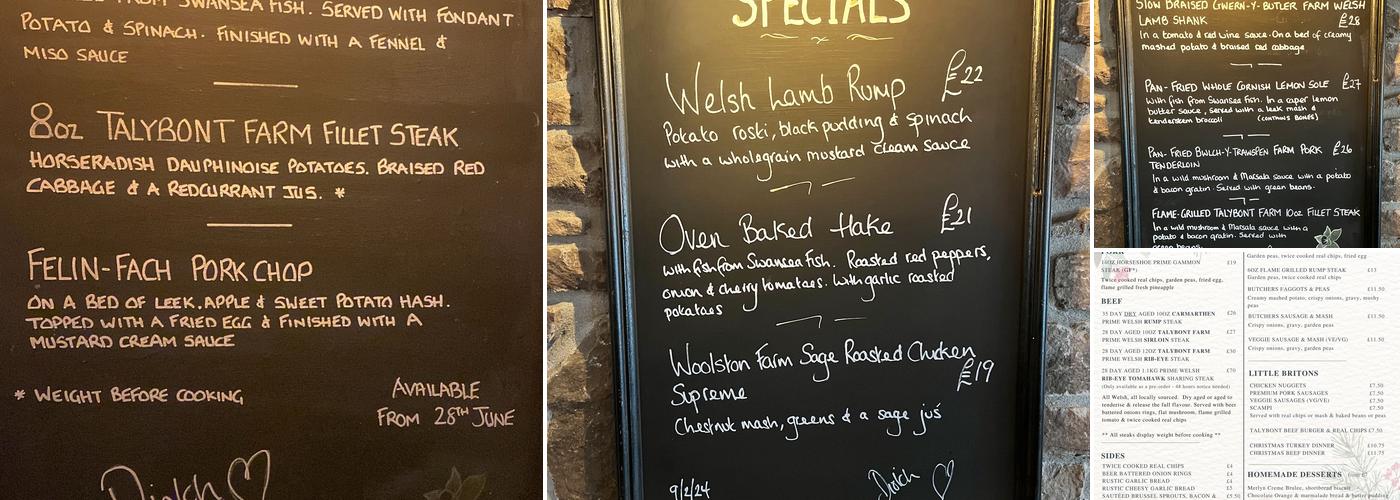 FROM SWANSEA FISH. SERVED WITH FONDANT
POTATO & SPINACH. FINISHED WITH A FENNEL &
MISO SAUCE
8oz TALYBONT FARM FILLET STEAK
HORSERADISH DAUPHINOISE POTATOES. BRAISED RED
CABBAGE & A REDCURRANT JUS. *
FELIN-FACH PORK CHOP
ON A BED OF LEEK, APPLE & SWEET POTATO HASH.
TOPPED WITH A FRIED EGG & FINISHED WITH A
MUSTARD CREAM SAUCE
* WEIGHT BEFORE COOKING
AVAILABLE
FROM 28TH JUNE
SPECIALS
Welsh Lamb Rump £22
Potato roski, black pudding & spinach
with a wholegrain mustard cream sauce
Oven Baked Hake £21
with fish from Swansea Fish. Roasted red peppers,
onion & cherry tomatoes. With garlic roasted
potatoes
Woolston Farm Sage Roasted Chicken
Supreme £19
Chestnut mash, greens & a sage jus
9/2/24
SLOW BRAISED GWERN-Y-BUTLER FARM WELSH
LAMB SHANK £28
In a tomato & red wine sauce. On a bed of creamy
mashed potato & braised red cabbage
PAN-FRIED WHOLE CORNISH LEMON SOLE £27
With fish from Swansea Fish. In a caper lemon
butter sauce, served with a leek mash &
tenderstem broccoli (CONTAINS BONES)
PAN-FRIED BWLCH-Y-TRAWSPEN FARM PORK £26
TENDERLOIN
In a wild mushroom & Marsala sauce with a potato
& bacon gratin. Served with green beans.
FLAME-GRILLED TALYBONT FARM 10oz FILLET STEAK
In a wild mushroom & Marsala sauce with a
potato & bacon gratin. Served with
green beans.
PORK
16OZ HORSESHOE PRIME GAMMON £19
STEAK (GF*)
Twice cooked real chips, garden peas, fried egg,
flame grilled fresh pineapple
BEEF
35 DAY DRY AGED 10OZ CARMARTHEN £26
PRIME WELSH RUMP STEAK
28 DAY AGED 10OZ TALYBONT FARM £27
PRIME WELSH SIRLOIN STEAK
28 DAY AGED 12OZ TALYBONT FARM £30
PRIME WELSH RIB-EYE STEAK
28 DAY AGED 1.1KG PRIME WELSH £70
RIB-EYE TOMAHAWK SHARING STEAK
(Only available as a pre-order - 48 hours notice needed)
All Welsh, all locally sourced. Dry aged or aged to
tenderise & release the full flavour. Served with beer
battered onion rings, flat mushroom, flame grilled
tomato & twice cooked real chips
** All steaks display weight before cooking **
SIDES
TWICE COOKED REAL CHIPS £4
BEER BATTERED ONION RINGS £4
RUSTIC GARLIC BREAD £4
RUSTIC CHEESY GARLIC BREAD £5
SAUTÉED BRUSSEL SPROUTS, BACON & £5.50
Garden peas, twice cooked real chips, fried egg
6OZ FLAME GRILLED RUMP STEAK £13
Garden peas, twice cooked real chips
BUTCHERS FAGGOTS & PEAS £11.50
Creamy mashed potato, crispy onions, gravy, mushy
peas
BUTCHERS SAUSAGE & MASH £11.50
Crispy onions, gravy, garden peas
VEGGIE SAUSAGE & MASH (VE/VG) £11.50
Crispy onions, gravy, garden peas
LITTLE BRITONS
CHICKEN NUGGETS £7.50
PREMIUM PORK SAUSAGES £7.50
VEGGIE SAUSAGES (VG/VE) £7.50
SCAMPI £7.50
Served with real chips or mash & baked beans or peas
TALYBONT BEEF BURGER & REAL CHIPS £7.50
CHRISTMAS TURKEY DINNER £10.75
CHRISTMAS BEEF DINNER £11.75
HOMEMADE DESSERTS
Merlyn Creme Brulee, shortbread biscuit
Chocolate Orange & marmalade bread & butter pudding